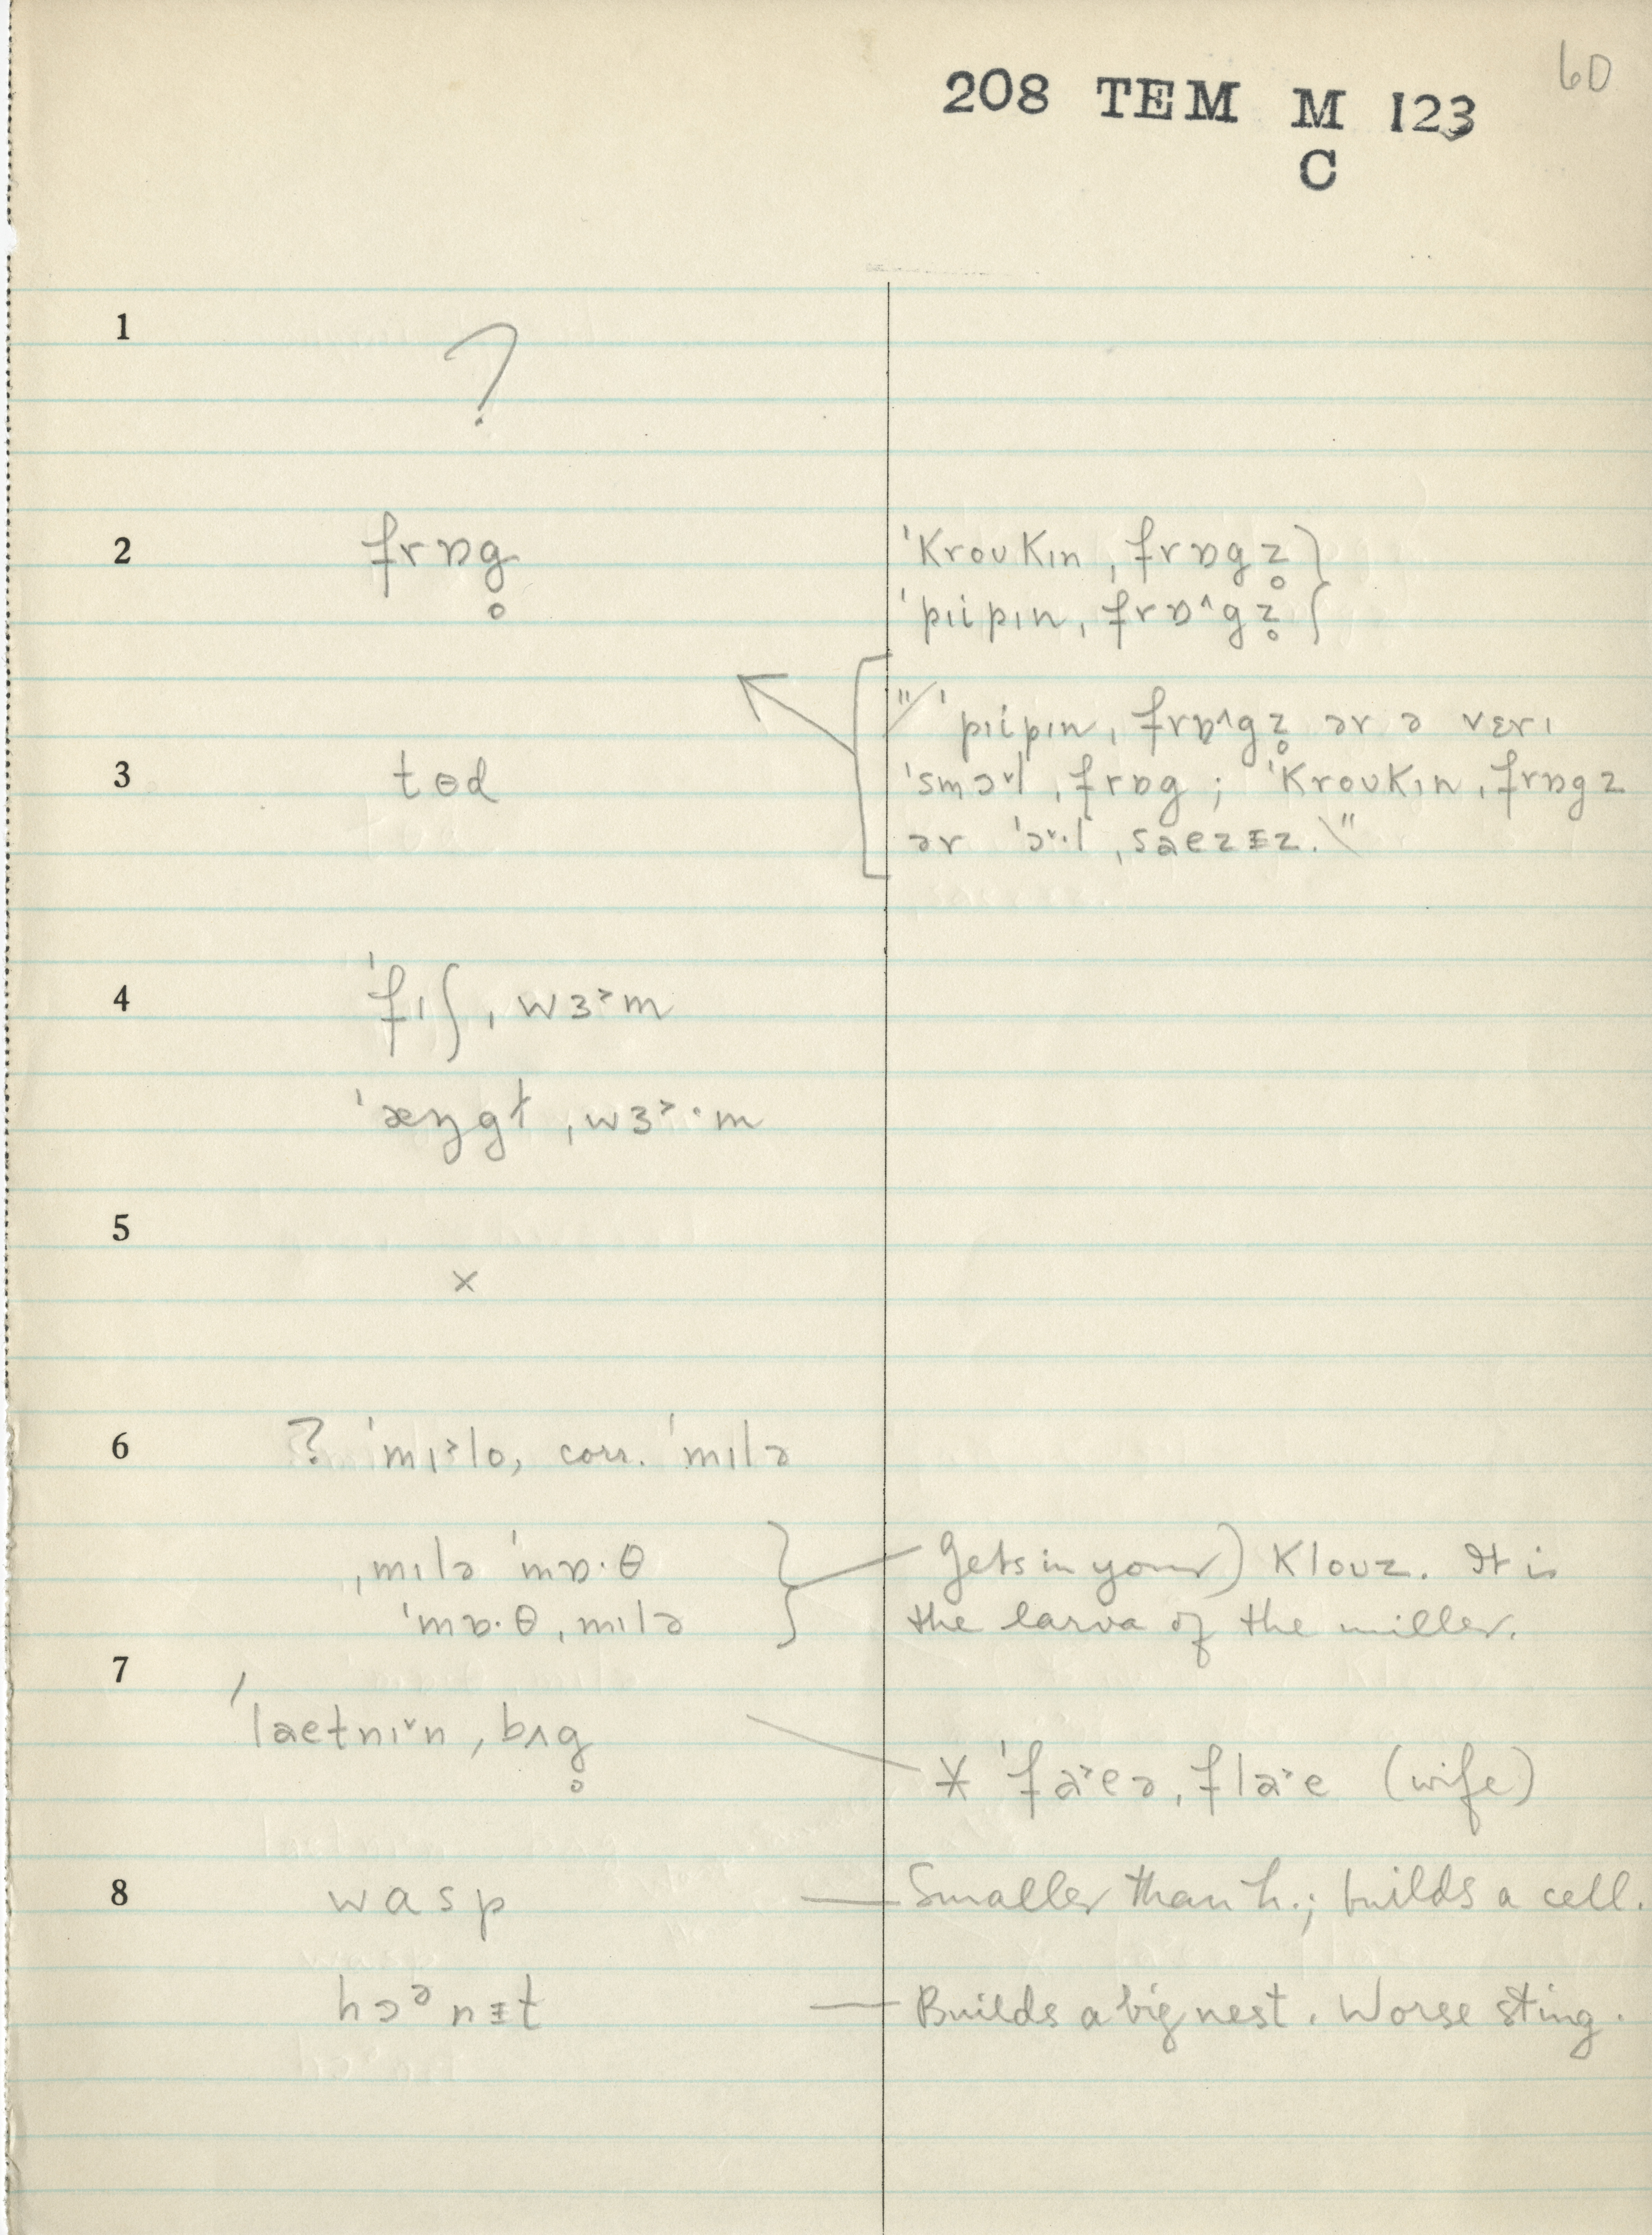 60
208 TEM M 123
C
1
?
2 frɒg̥ ˈkroʊkɪn ˌfrɒgz̥
ˈpɪipɪn ˌfrɒ^gz̥
"/ˈpɪipɪn ˌfrɒ^gz̥ ər ə vɛrɪ
3 tɵd ˈsmɔ˅l ˌfrɒg ; ˈkroʊkɪn ˌfrɒgz
ər ˈɔ˅·l ˌsaezɪ̵z.\"
4 ˈfɪʃ ˌwɜ˃m
ˈæŋgɫ ˌwɜ˃·m
5
×
6 ? ˈmɪ˃lo, corr. ˈmɪlə
ˌmɪlə ˈmɒ·θ Gets in your) klouz. It is
ˈmɒ·θ ˌmɪlə the larva of the miller.
7
ˈlaetnɪ˅n ˌbʌg̥
* ˈfa˃eə ˌfla˃e (wife)
8 wasp — Smaller than h.; builds a cell.
hɔᵊnɪ̵t — Builds a big nest. Worse sting.